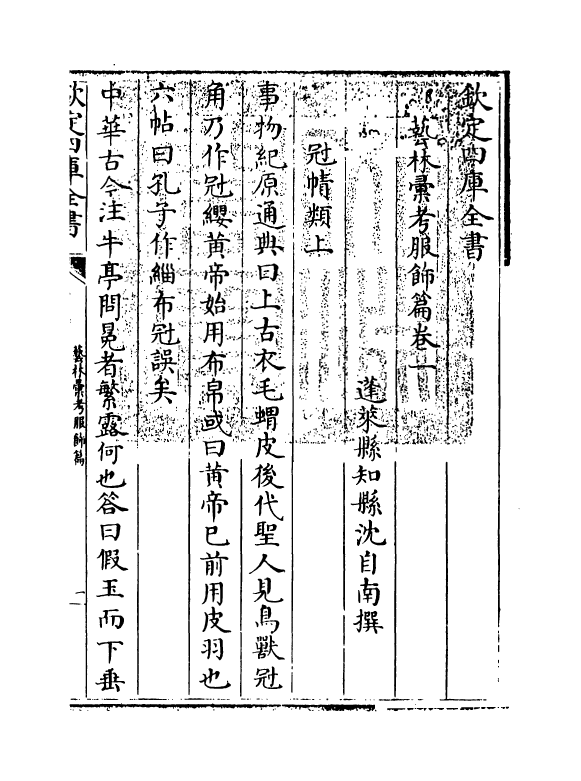 欽定四庫全書
藝林彚考服飾篇卷一
蓬萊縣知縣沈自南撰
冠幘類上
事物紀原通典曰上古衣毛蝟皮後代聖人見鳥獸冠
角乃作冠纓黃帝始用布帛或曰黃帝已前用皮羽也
六帖曰孔子作緇布冠誤矣
中華古今注牛亨問冕者繁露何也答曰假玉而下垂
欽定四庫全書
藝林彚考服飾篇
一